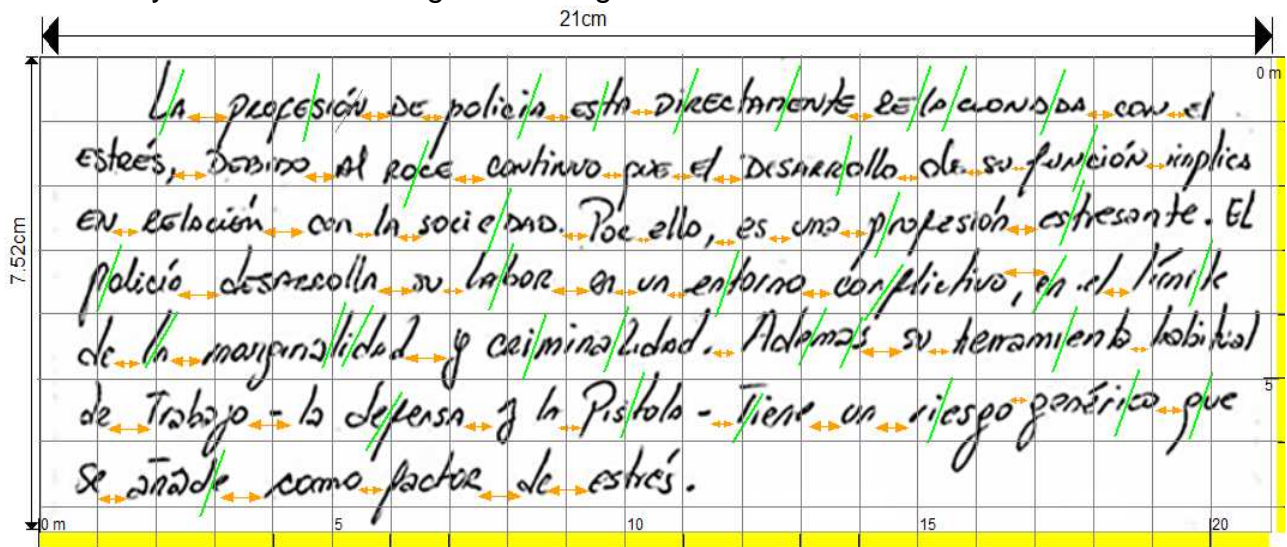 21cm
7.52cm
0 m
LA PROFESIÓN DE policía ESTA DIRECTAMENTE RELACIONADA CON el
ESTRÉS, DEBIDO Al ROCE CONTINUO QUE El DESARROllo de su FUNCIÓN implica
EN RElación con la sociedad. Por ello, es una profesión estresante. El
policía desarrolla su labor en un entorno conflictivo, en el límite
de la marginalidad y criminalidad. Además su herramienta habitual
5
de Trabajo - la defensa y la Pistola - Tiene un riesgo genérico que
se añade como factor de estrés.
0 m 5 10 15 20